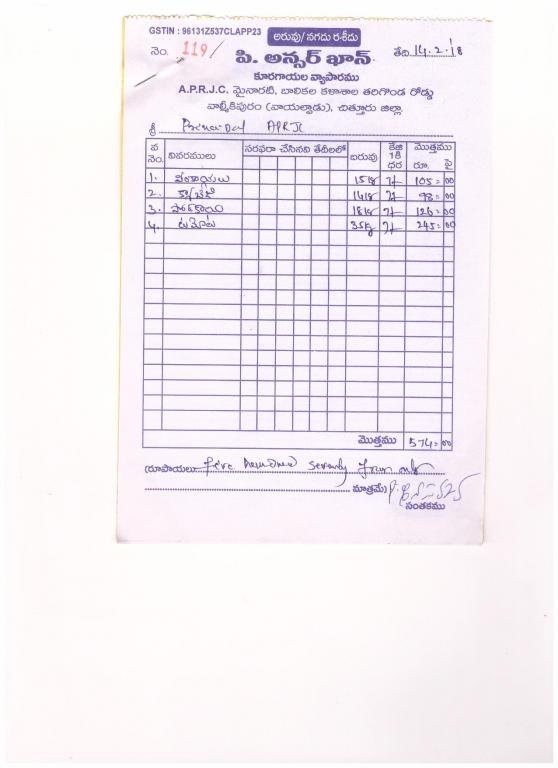 GSTIN : 96131Z537CLAPP23
అరువు/నగదు రశీదు
నెం. 119/
తేది 14.2.18
పి. అన్సర్ ఖాన్
కూరగాయల వ్యాపారము
A.P.R.J.C. మైనారటీ, బాలికల కళాశాల తరిగొండ రోడ్డు
వాల్మీకిపురం (వాయల్పాడు), చిత్తూరు జిల్లా.
శ్రీ APRJC
వ నెం. వివరములు సరఫరా చేసినవి తేదీలలో బరువు కేజి 1కి ధర మొత్తము రూ. పై
1. వంకాయలు 15kg 7/- 105=00
2. క్యాబేజి 14kg 7/- 98=00
3. 18kg 7/- 126=00
4. టమోటు 35kg 7/- 245=00
మొత్తము 574=00
(రూపాయలు Five hundred seventy four only
మాత్రమే)
సంతకము